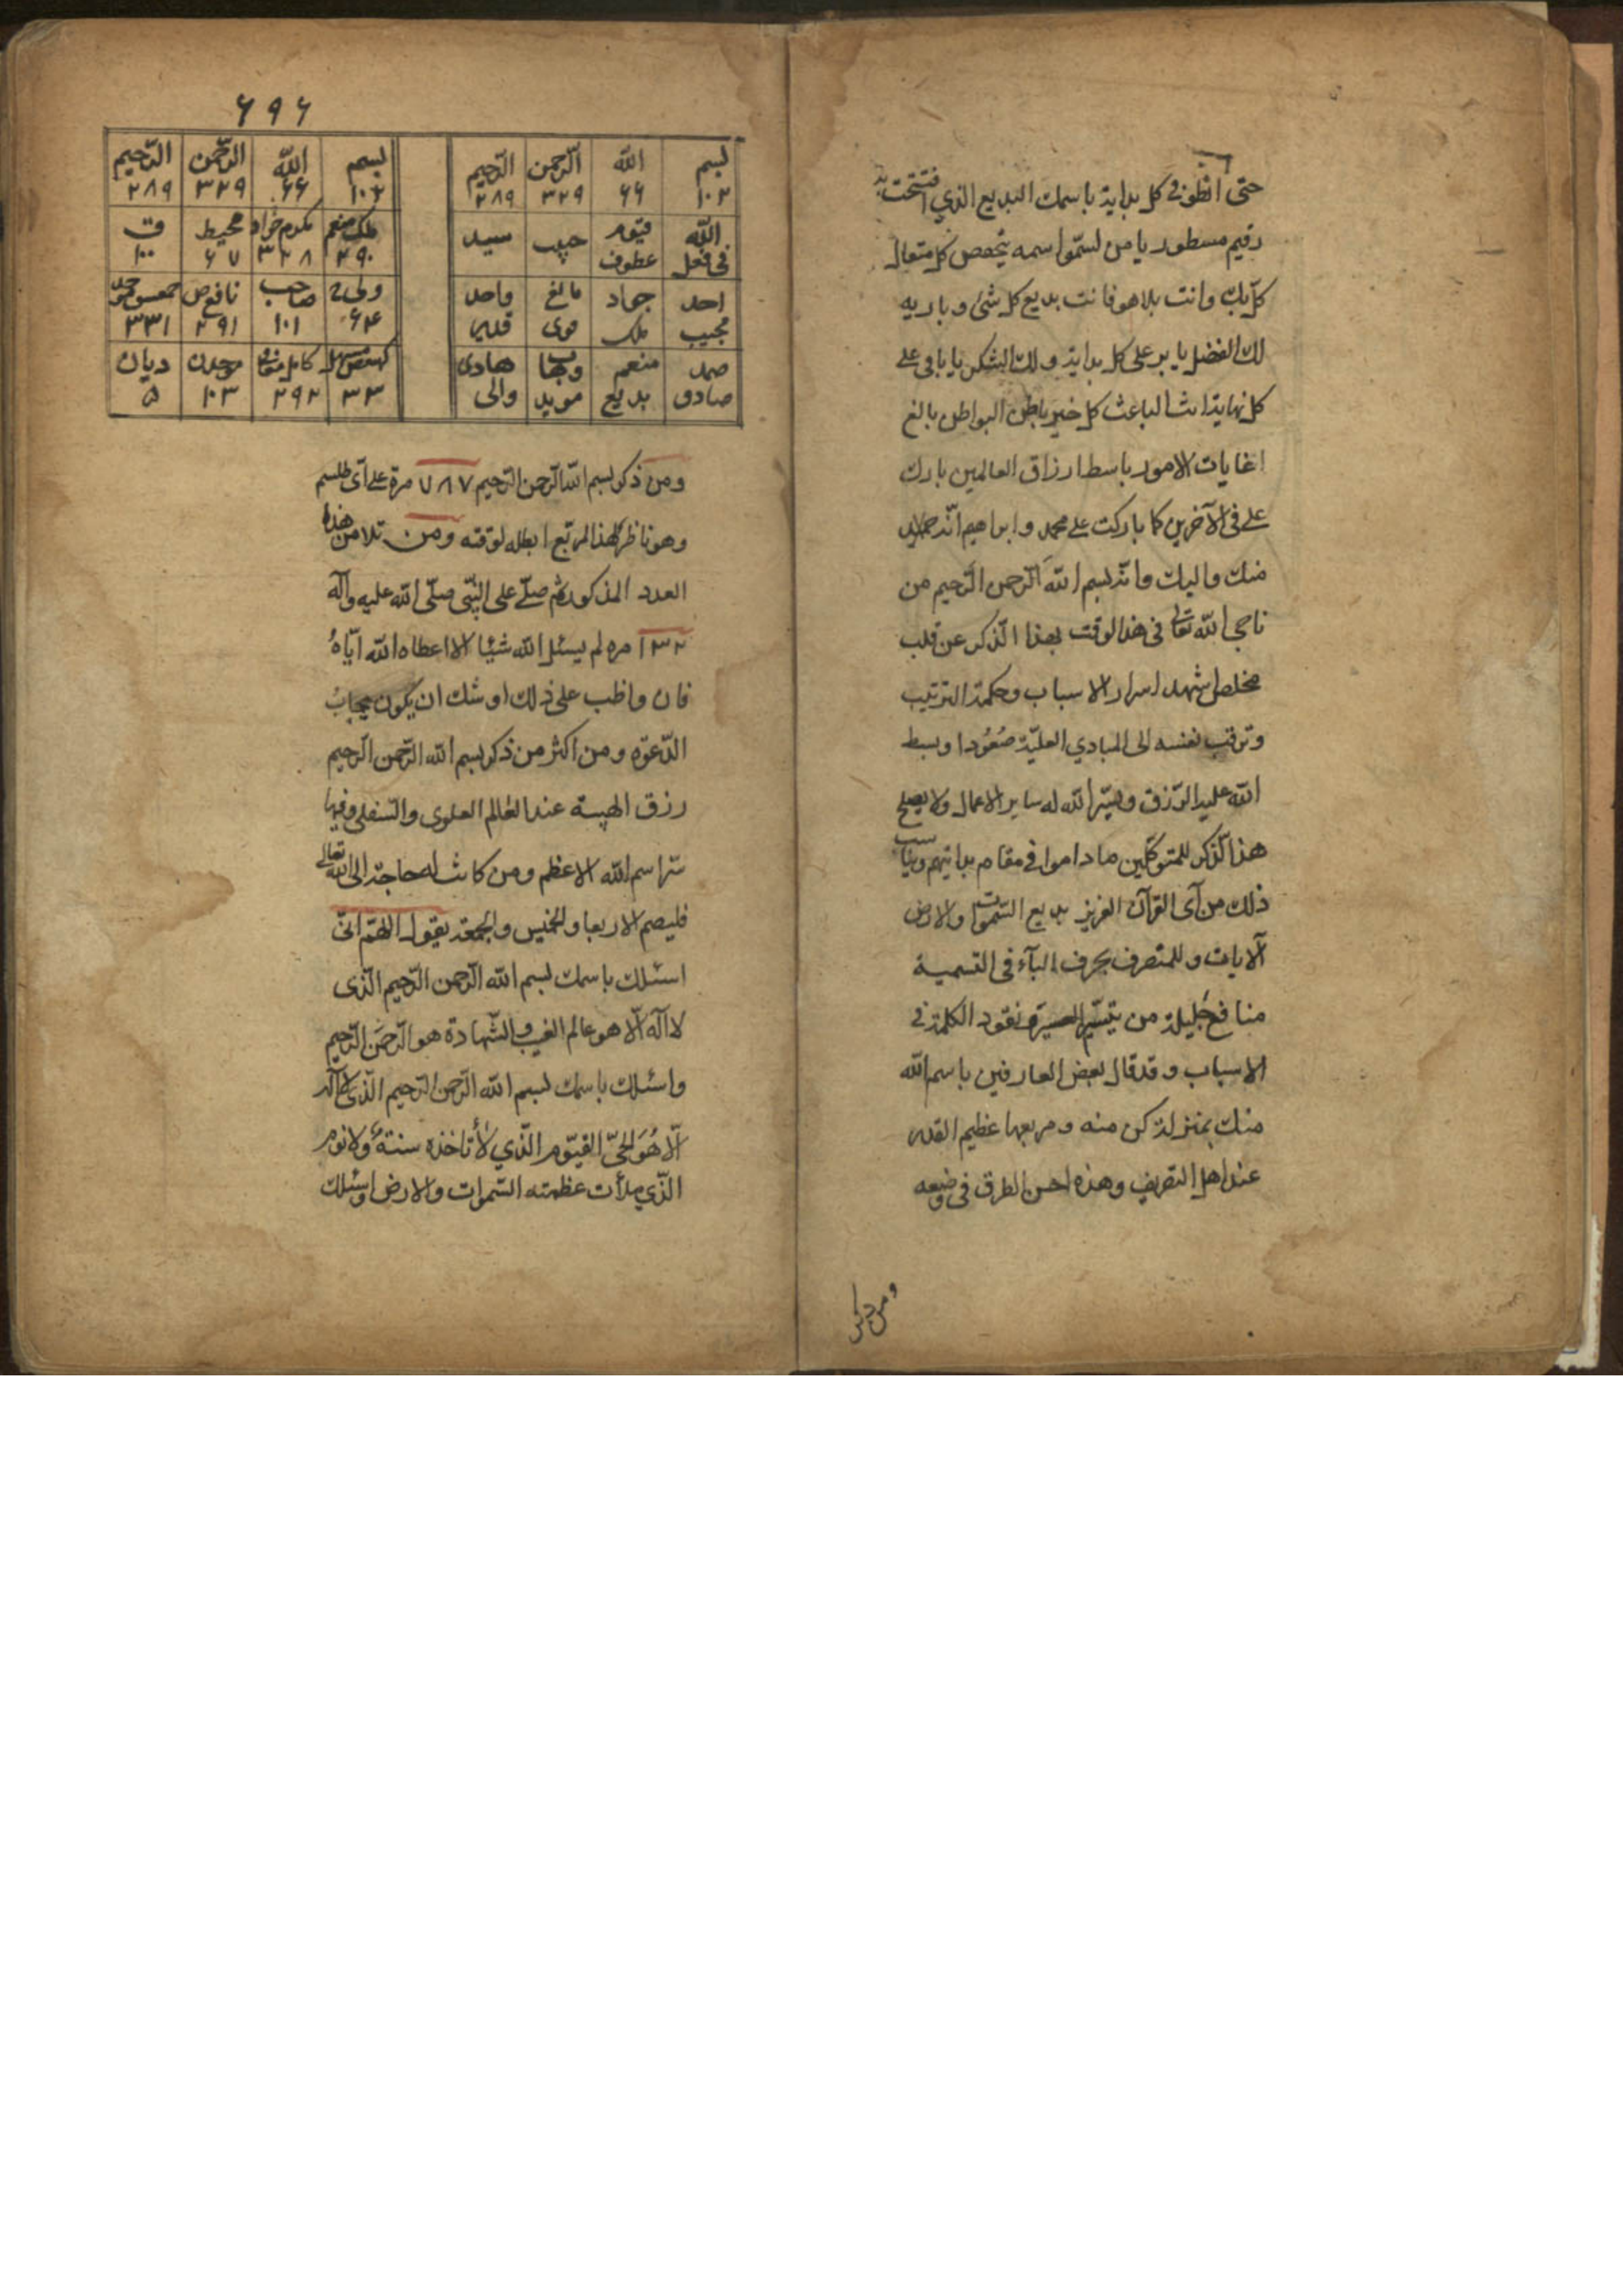 حتى انطق فى كل بداية باسمك البديع الذي افتتحت به
رقيم مسطور يا من لسمو اسمه يخفض كل متعال
كل بك وانت بلا هو فانت بديع كل شئ وباريه
لك الفضل يا بر على كل بداية ولك الشكر يا باقى على
كل نهاية انت الباعث كل خير باطن البواطن بالغ
اغايات الامور باسط ارزاق العالمين بارك
على فى الآخرين كما باركت على محمد وابراهيم انك حميد
منك واليك وانه بسم الله الرحمن الرحيم من
ناجى الله تعالى فى هذا الوقت بهذا الذكر عن قلب
مخلص شهد اسرار الاسباب وحكمة الترتيب
وترقب نفسه الى المبادي العلية صعودا وبسط
الله عليه الرزق ويسر الله له ساير الاعمال ولا يصلح
هذا الذكر للمتوكلين ما داموا فى مقام بدايتهم ويناسب
ذلك من آى القرآن العزيز بديع السموات والارض
الآيات وللمتصرف بحرف البآء فى التسمية
منافع جليلة من تيسير العسير ونفوذ الكلمة فى
الاسباب وقد قال بعض العارفين باسم الله
منك بمنزلة كن منه ومربعها عظيم القدر
عند اهل التصريف وهذه احسن الطرق فى وضعه
ومن ذكر
۶۹۶
بسم الله الرحمن الرحيم
۱۰۲ ۶۶ ۳۲۹ ۲۸۹
الله قيوم حبيب سيد
عطوف
احد جواد مانع واحد
مجيب ملك قوى قدير
صمد منعم وهاب هادى
صادق بديع مويد والى
بسم الله الرحمن الرحيم
۱۰۲ ۶۶ ۳۲۹ ۲۸۹
ملك منعم مكرم محيط ق
۲۹۰ ۳۲۸ ۶۷ ۱۰۰
ولى صاحب نافع
۶۴ ۱۰۱ ۲۹۱ ۳۳۱
كامل ديان
۳۳ ۲۹۲ ۱۰۳ ۵
ومن ذكر بسم الله الرحمن الرحيم ۷۸۷ مرة على اى طلسم
وهو ناظر لهذا المربع ابطله لوقته ومن تلا من هذا
العدد المذكور ثم صلى على النبى صلى الله عليه وآله
۱۳۲ مره لم يسئل الله شيئا الا اعطاه الله اياه
فان واظب على ذلك اوشك ان يكون مجاب
الدعوه ومن اكثر من ذكر بسم الله الرحمن الرحيم
رزق الهيبة عند العالم العلوى والسفلى وفيها
سر اسم الله الاعظم ومن كانت له حاجة الى الله تعالى
فليصم الاربعا والخميس والجمعة يقول اللهم انى
اسئلك باسمك بسم الله الرحمن الرحيم الذى
لا اله الا هو عالم الغيب والشهادة هو الرحمن الرحيم
واسئلك باسمك بسم الله الرحمن الرحيم الذى لا اله
الا هو الحى القيوم الذي لا تاخذه سنة ولا نوم
الذي ملأت عظمته السموات والارض واسئلك